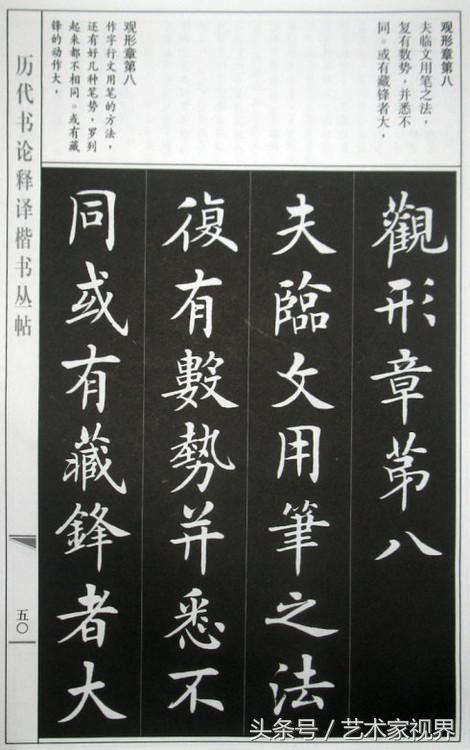 观形章第八
夫临文用笔之法，
复有数势，并悉不
同。或有藏锋者大，
观形章第八
作字行文用笔的方法，
还有好几种笔势，罗列
起来都不相同。或有藏
锋的动作大，
觀形章第八
夫臨文用筆之法
復有數勢并悉不
同或有藏鋒者大
历代书论释译楷书丛帖
五〇
头条号／艺术家视界